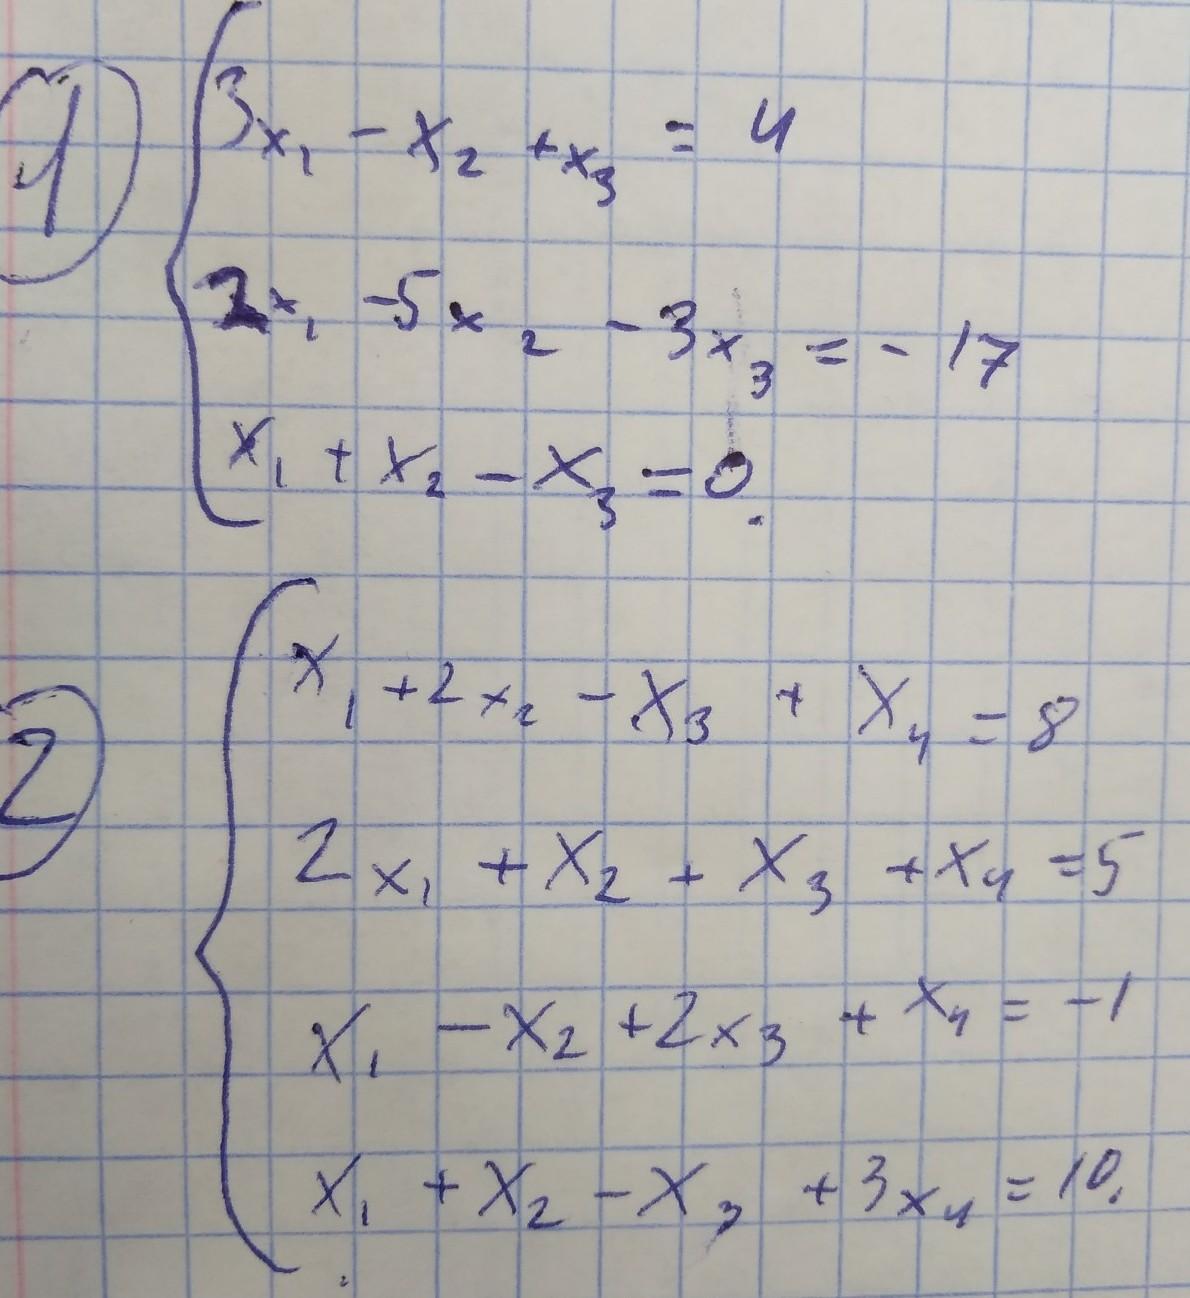 1
3x₁ - x₂ + x₃ = 4
2x₁ - 5x₂ - 3x₃ = -17
x₁ + x₂ - x₃ = 0.
2
x₁ + 2x₂ - x₃ + x₄ = 8
2x₁ + x₂ + x₃ + x₄ = 5
x₁ - x₂ + 2x₃ + x₄ = -1
x₁ + x₂ - x₃ + 3x₄ = 10.